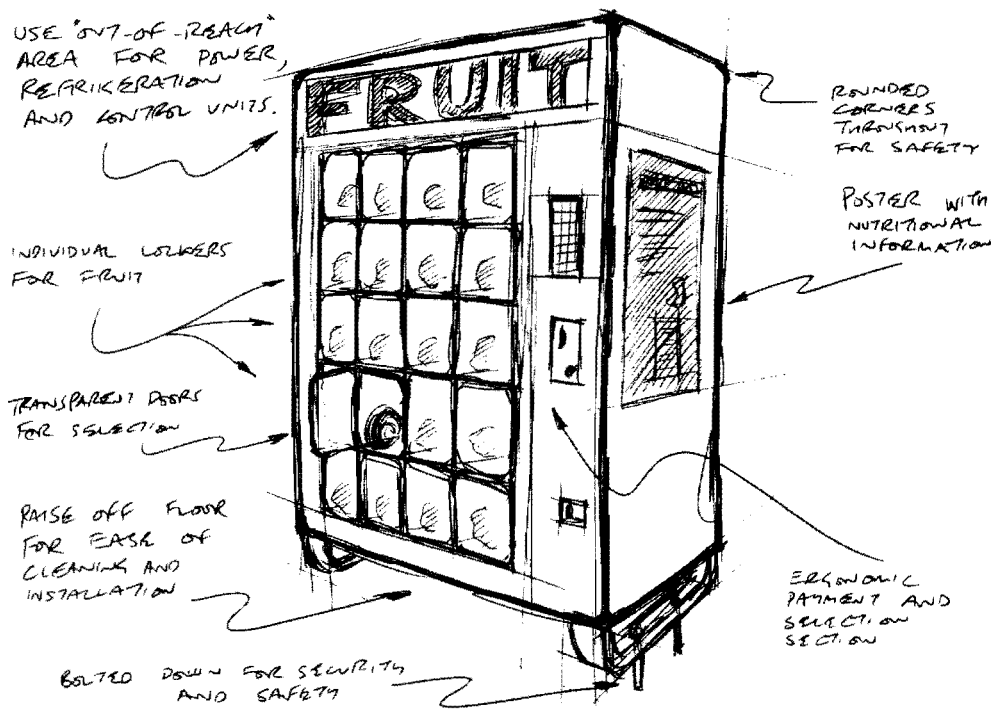 USE "OUT-OF-REACH"
AREA FOR POWER,
REFRIGERATION
AND CONTROL UNITS.
FRUIT
ROUNDED
CORNERS
THROUGHOUT
FOR SAFETY
POSTER WITH
NUTRITIONAL
INFORMATION
INDIVIDUAL LOCKERS
FOR FRUIT
TRANSPARENT DOORS
FOR SELECTION
RAISE OFF FLOOR
FOR EASE OF
CLEANING AND
INSTALLATION
ERGONOMIC
PAYMENT AND
SELECTION
SECTION
BOLTED DOWN FOR SECURITY
AND SAFETY